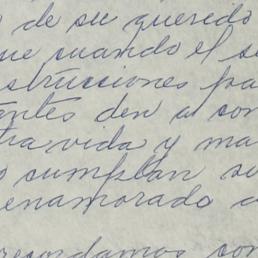 de su querido
que cuando el s
strucciones pa
entes den a con
tra vida y ma
o cumplan su
enamorado a
recordamos con